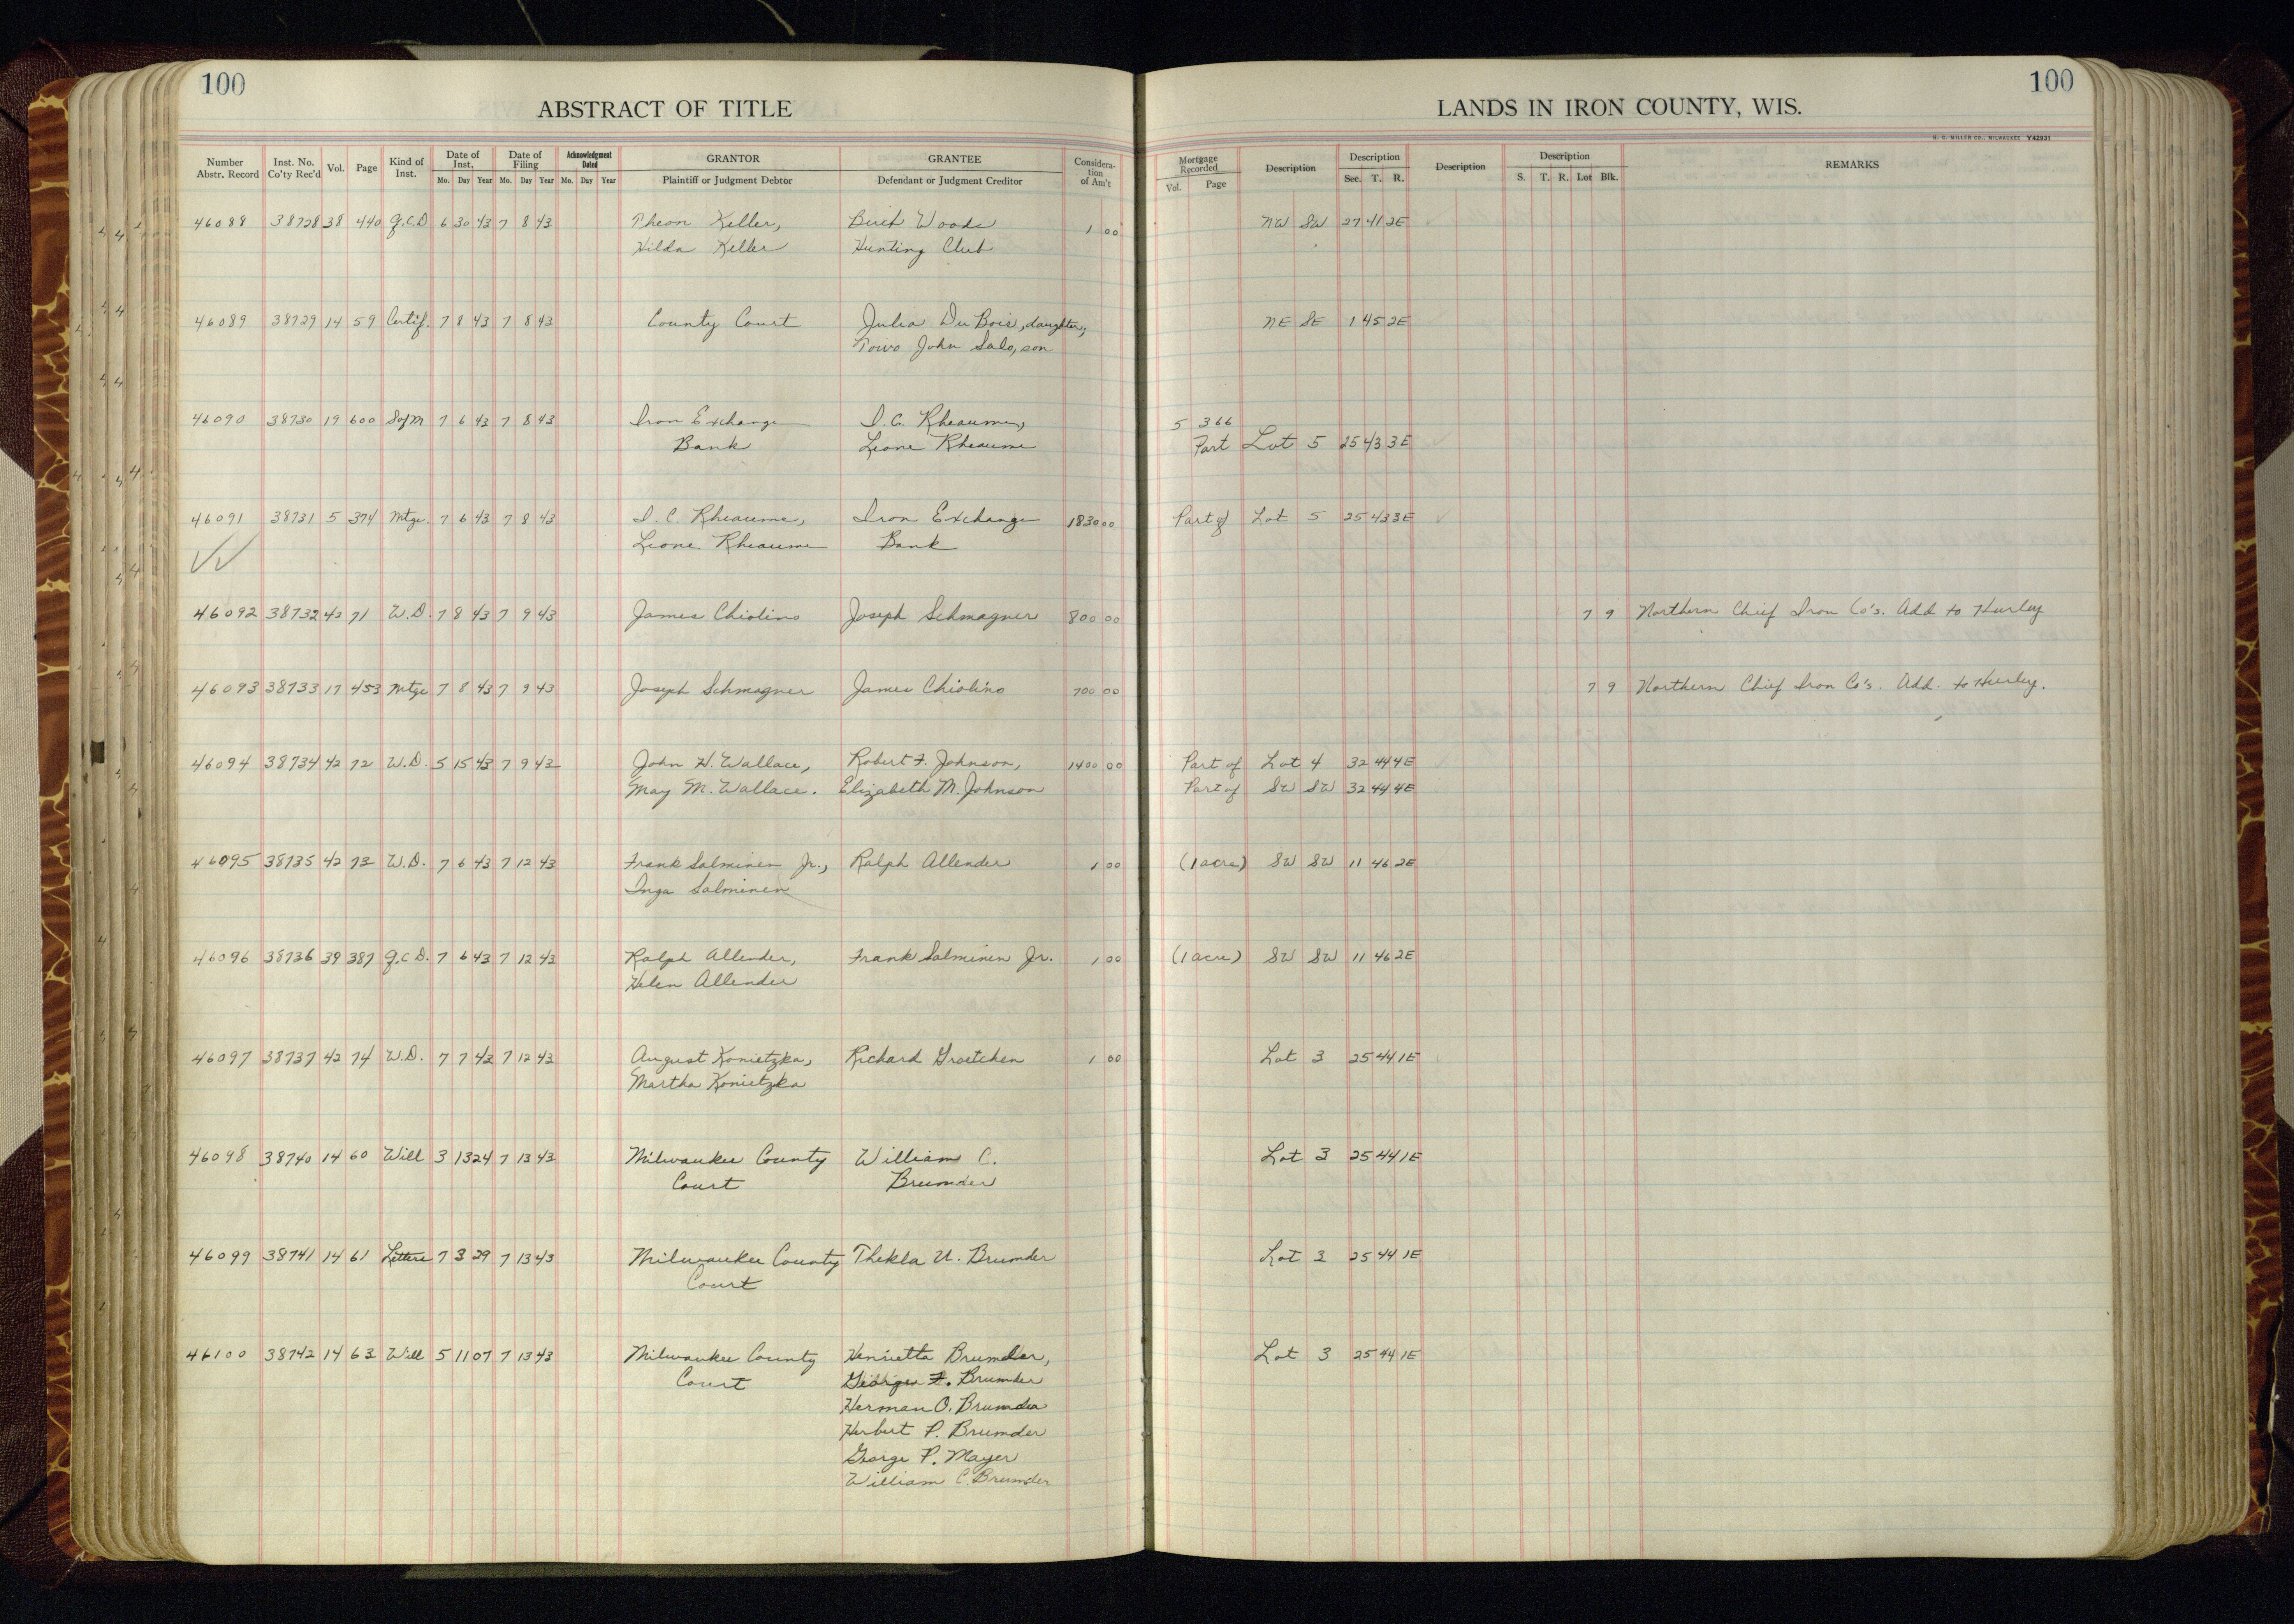 100
ABSTRACT OF TITLE
Number Abstr. Record Inst. No. Co'ty Rec'd Vol. Page Kind of Inst. Date of Inst. Mo. Day Year Date of Filing Mo. Day Year Acknowledgment Dated Mo. Day Year GRANTOR Plaintiff or Judgment Debtor GRANTEE Defendant or Judgment Creditor Consideration of Am't
100
LANDS IN IRON COUNTY, WIS.
H. C. MILLER CO., MILWAUKEE Y42931
Mortgage Recorded Vol. Page Description Description Sec. T. R. Description Description S. T. R. Lot Blk. REMARKS
46088 38728 38 440 Q.C.D 6 30 43 7 8 43 Theon Keller, Birch Woods 1 00 NW SW 27 41 2E
Hilda Keller Hunting Club
46089 38729 14 59 Certif. 7 8 43 7 8 43 County Court Julia DuBois, daughter, NE SE 1 45 2E
Toivo John Salo, son
46090 38730 19 600 SofM 7 6 43 7 8 43 Iron Exchange I. C. Rheaume, 5 366
Bank Leone Rheaume Part Lot 5 25 43 3E
46091 38731 5 374 Mtge. 7 6 43 7 8 43 I. C. Rheaume, Iron Exchange 1830 00 Part of Lot 5 25 43 3E
Leone Rheaume Bank
46092 38732 42 71 W.D. 7 8 43 7 9 43 James Chiolino Joseph Schmagner 800 00 7 9 Northern Chief Iron Co's. Add to Hurley
46093 38733 17 453 Mtge 7 8 43 7 9 43 Joseph Schmagner James Chiolino 700 00 7 9 Northern Chief Iron Co's. Add. to Hurley.
46094 38734 42 72 W.D. 5 15 43 7 9 43 John H. Wallace, Robert F. Johnson, 1400 00 Part of Lot 4 32 44 4E
May M. Wallace. Elizabeth M. Johnson Part of SW SW 32 44 4E
46095 38735 42 73 W.D. 7 6 43 7 12 43 Frank Salminen Jr., Ralph Allender 1 00 (1 acre) SW SW 11 46 2E
Inga Salminen
46096 38736 39 387 Q.C.D. 7 6 43 7 12 43 Ralph Allender, Frank Salminen Jr. 1 00 (1 acre) SW SW 11 46 2E
Helen Allender
46097 38737 42 74 W.D. 7 7 43 7 12 43 August Konietzka, Richard Groetchen 1 00 Lot 3 25 44 1E
Martha Konietzka
46098 38740 14 60 Will 3 13 24 7 13 43 Milwaukee County William C. Lot 3 25 44 1E
Court Brumder
46099 38741 14 61 Letters 7 3 29 7 13 43 Milwaukee County Thekla U. Brumder Lot 3 25 44 1E
Court
46100 38742 14 63 Will 5 11 07 7 13 43 Milwaukee County Henrietta Brumder, Lot 3 25 44 1E
Court George F. Brumder
Herman O. Brumder
Herbert P. Brumder
George P. Mayer
William C. Brumder